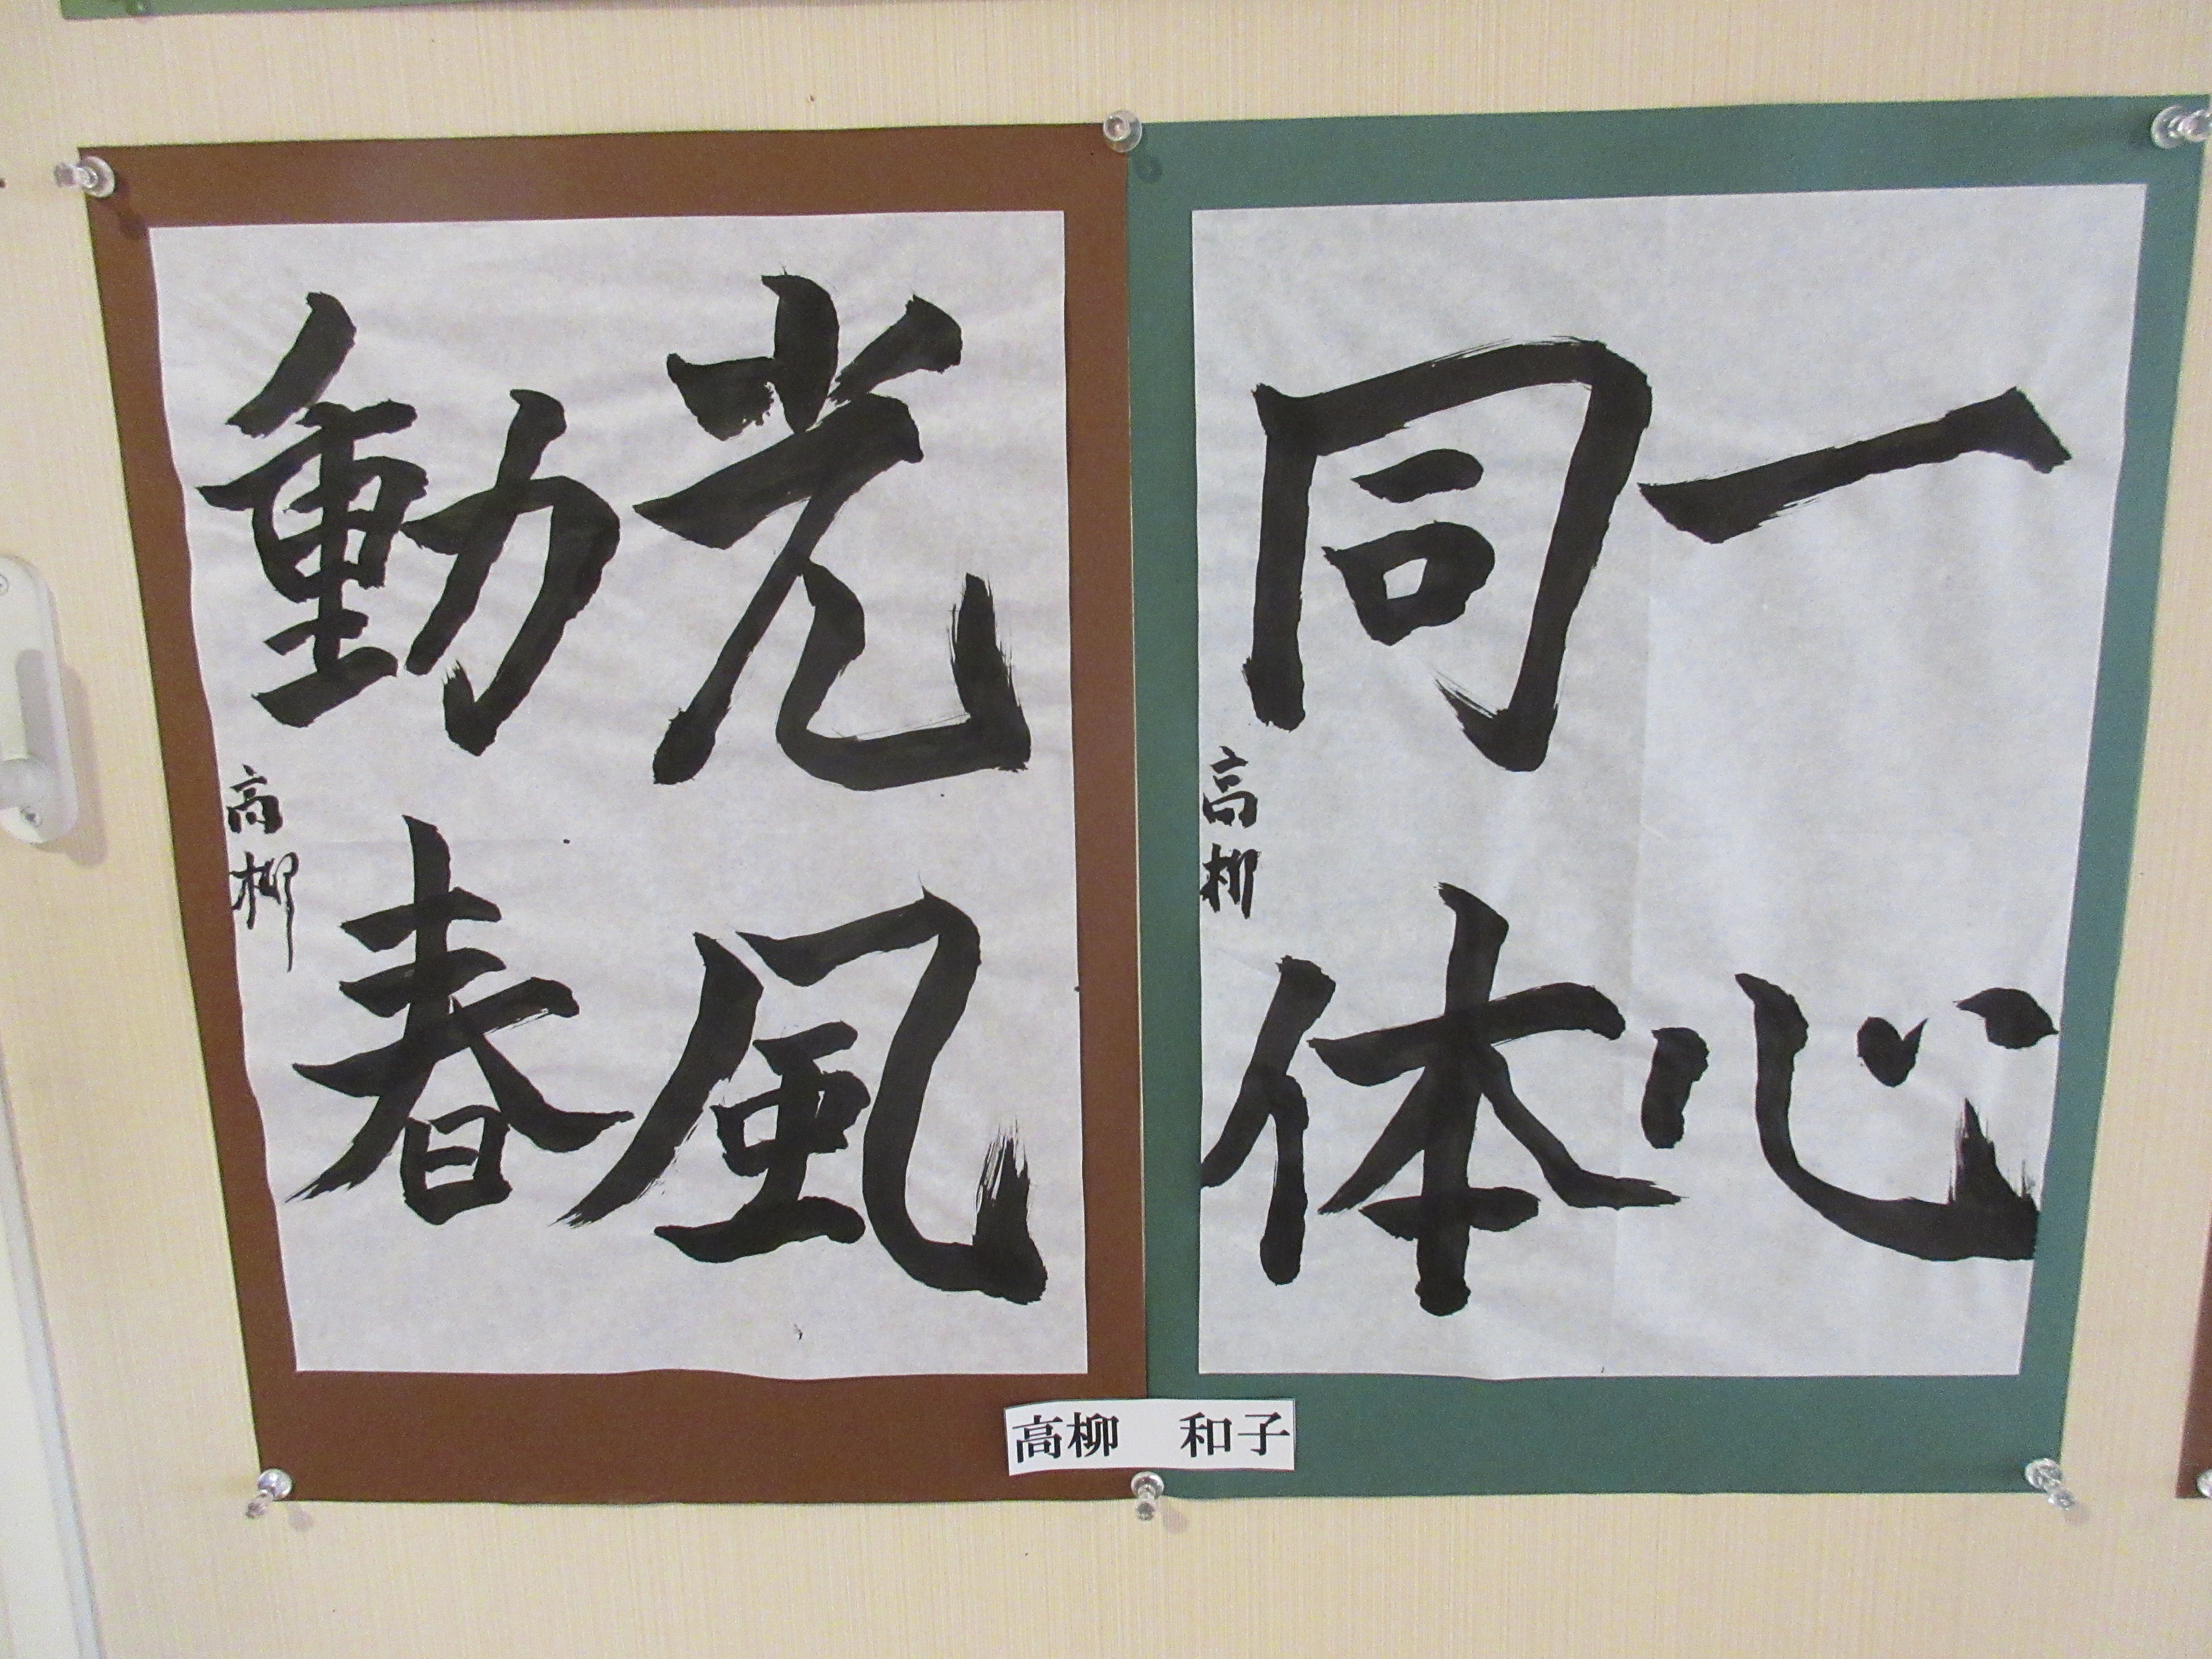 一心
同体
高柳
光風
動春
高柳
高柳　和子